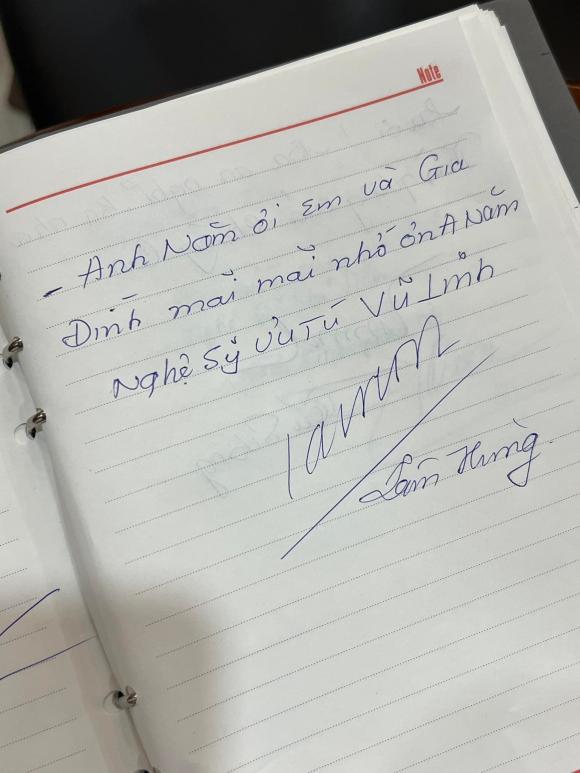 Note
- Anh Năm ơi Em và Gia
Đình mãi mãi nhớ ơn A Năm
Nghệ Sỹ Ưu Tú Vũ Linh
Lâm Hùng